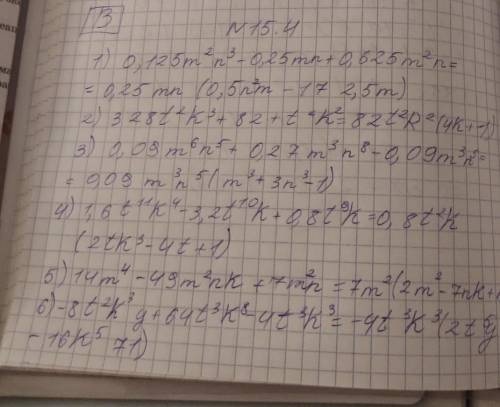 В
N15.4
1) 0,125m²n³ - 0,25mn + 0,625m²n =
= 0,25mn (0,5n²m - 17 2,5m)
2) 328t²K³ + 82 + t⁴K² = 82t²K²(4K+-1)
3) 0,09m⁶n⁵ + 0,27m³n⁸ - 0,09m³n⁵ =
= 0,09 m³n⁵(m³+3n³-1)
4) 1,6t¹¹K⁴ - 3,2t¹⁰K + 0,8t⁹K = 0,8t²K
(2tK³ - 4t + 1)
5) 14m⁴ - 49m²nK + 7m²n = 7m²(2m² - 7nK +
6) -8t²K³y + 64t³K⁸ - 4t³K³ = -4t³K³(2t⁶y
- 16K⁵ 71)